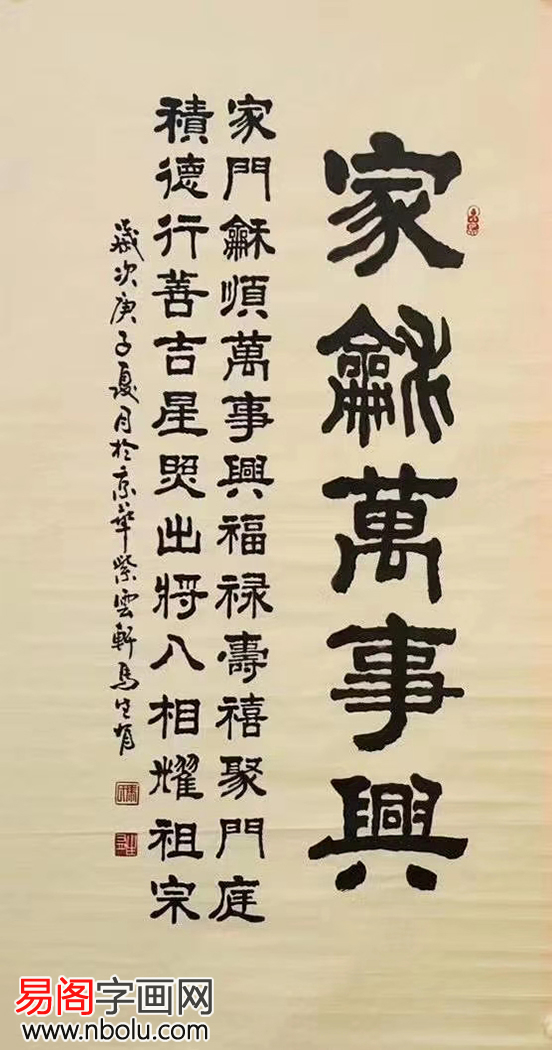 家龢萬事興
家門龢順萬事興福禄壽禧聚門庭
積德行善吉星照出將入相耀祖宗
歲次庚子夏月於京華紫雲軒馬生育
易阁字画网
www.nbolu.com